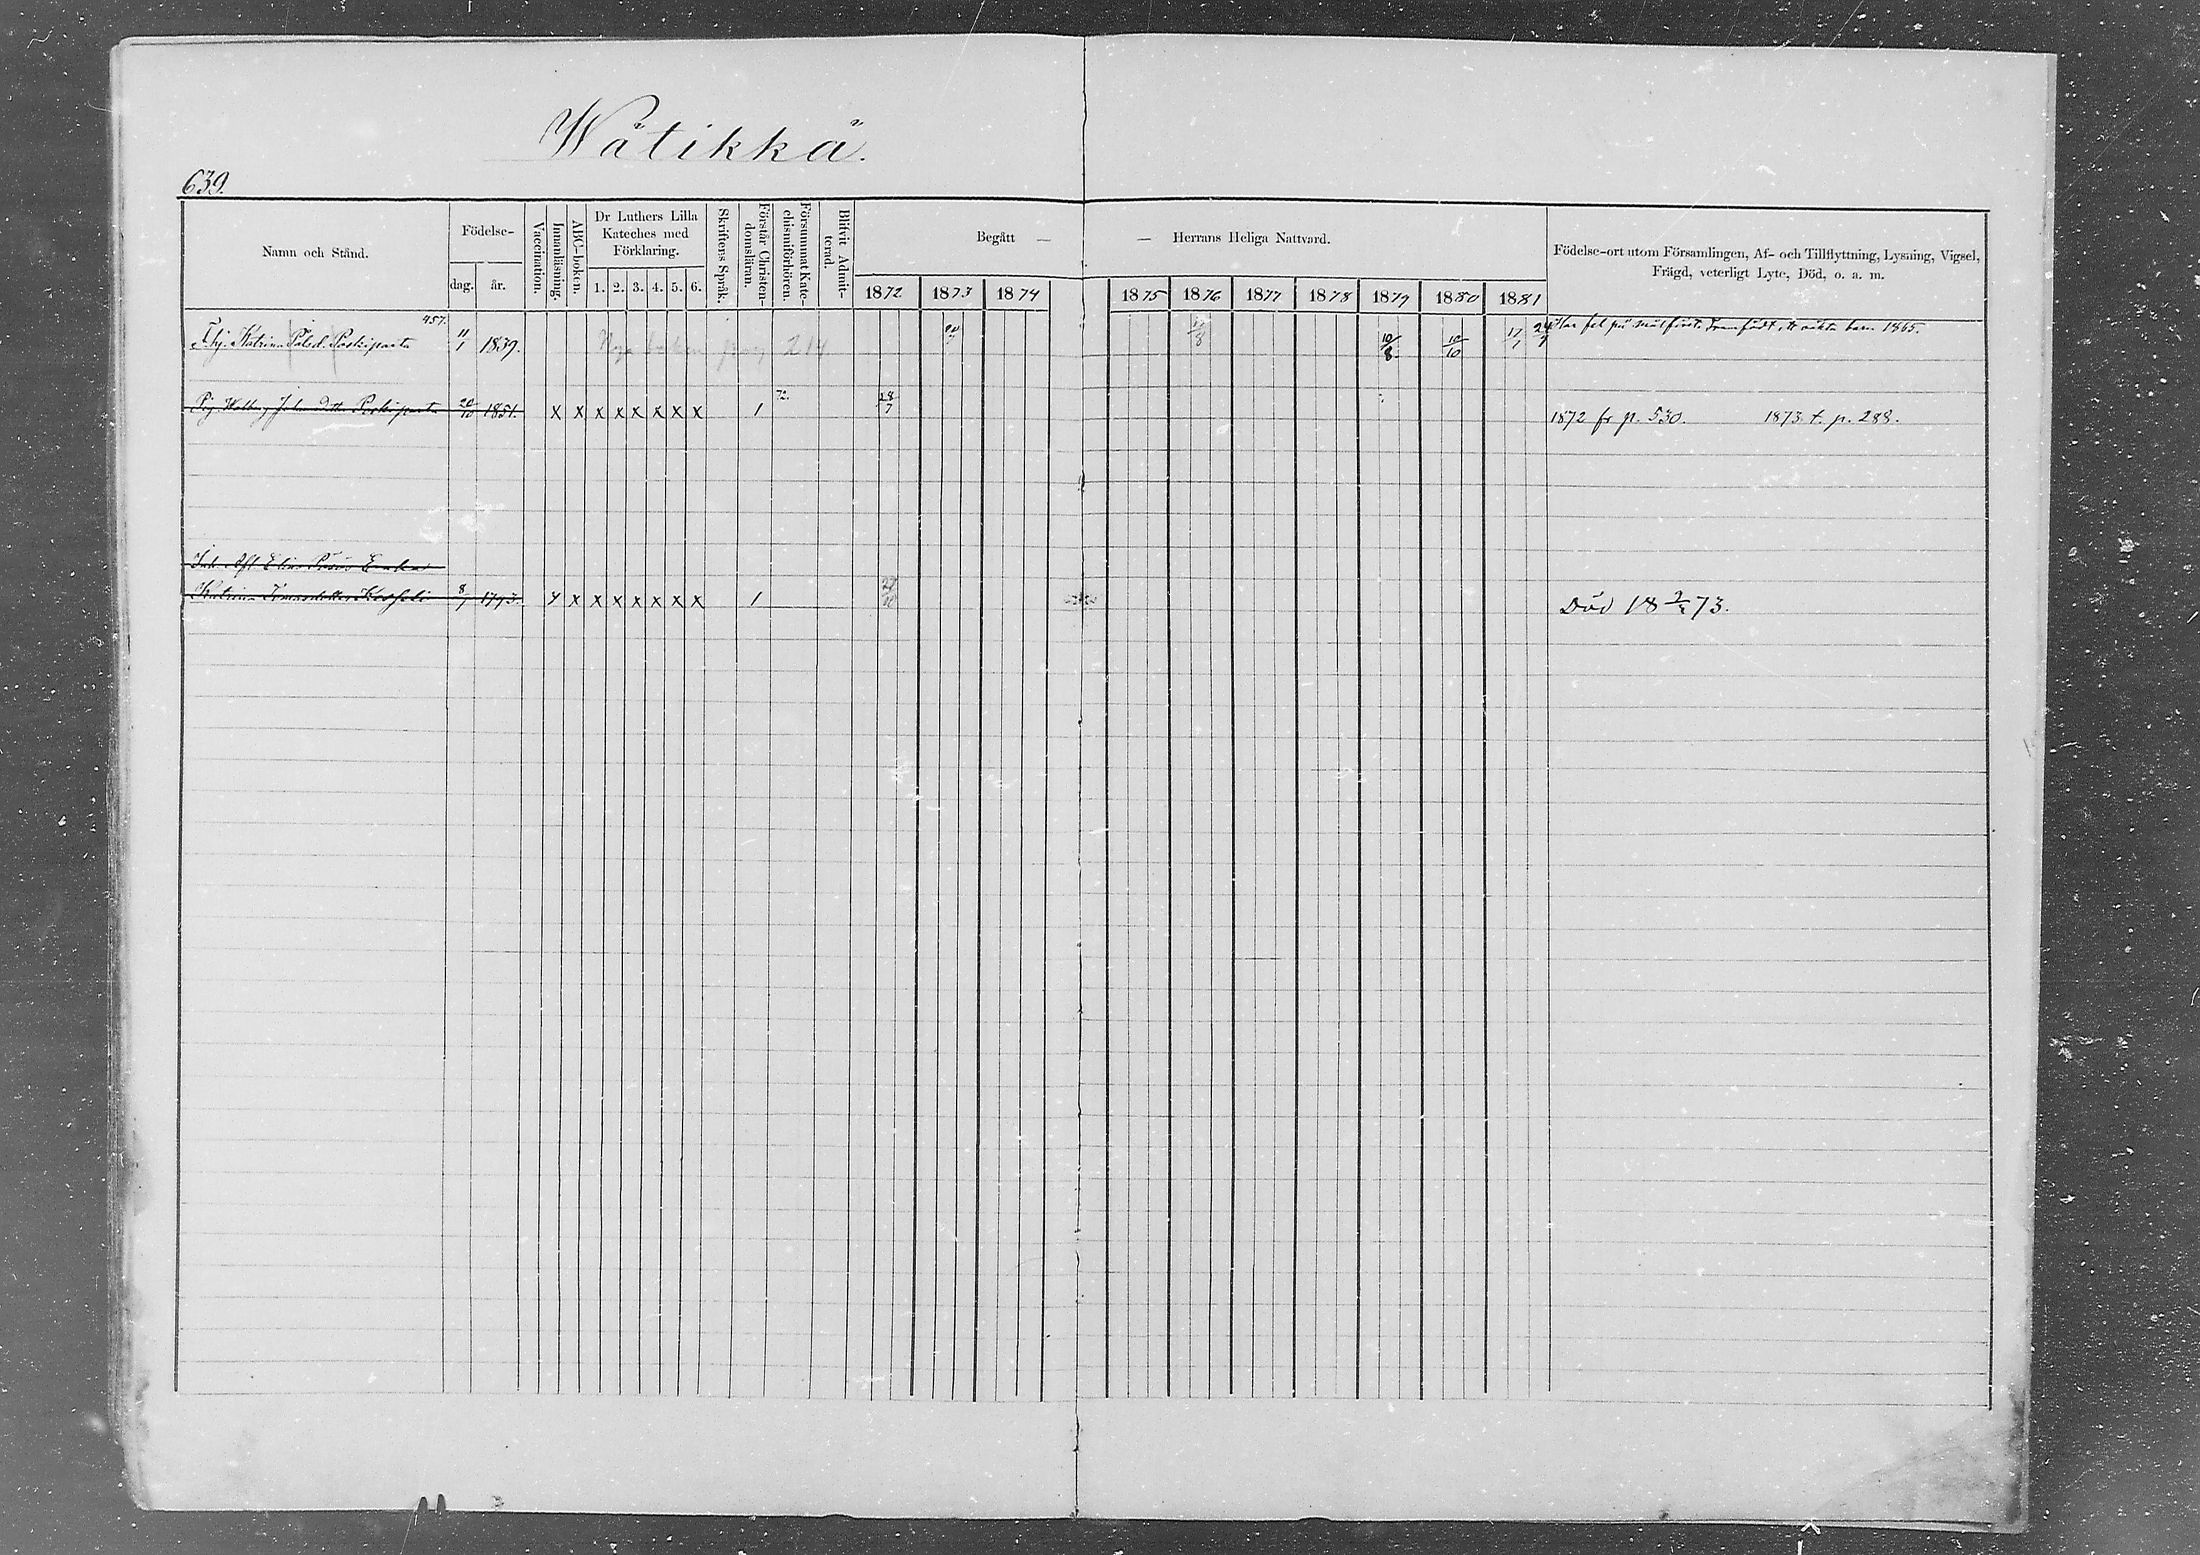 Wätikkä.
639.
Namn och Stånd.
Födelse-
dag.
år.
Vaccination.
Innanläsning.
ABC-boken.
Dr Luthers Lilla
Kateches med
Förklaring.
1. 2. 3. 4. 5. 6.
Skriftens Språk.
Förstår Christen-
domsläran.
Försummat Kate-
chismiförhören.
Blifvit Admit-
terad.
Begått —
— Herrans Heliga Nattvard.
1872 1873 1874 1875 1876 1877 1878 1879 1880 1881
Födelse-ort utom Församlingen, Af- och Tillflyttning, Lysning, Vigsel,
Frägd, veterligt Lyte, Död, o. a. m.
457.
Katrina Påskiparta 11/1 1839. 214 10/8 10/10 Har fel på barn 1865.
Pig. Johansdtr 1851. x x x x x x x x 1 72. 28/7 1872 fr p. 530. 1873 t. p. 288.
Elias
Katrina 8/7 1793. x x x x x x x 1 Död 18 73.